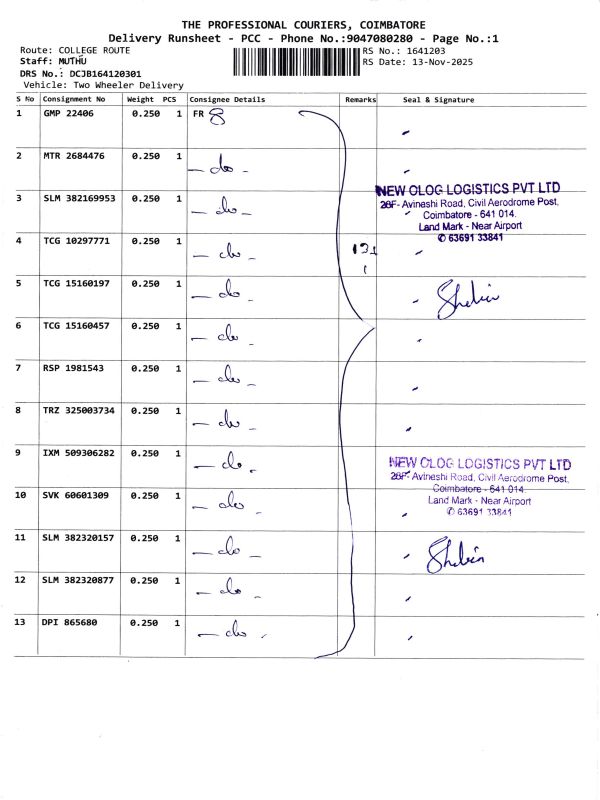 THE PROFESSIONAL COURIERS, COIMBATORE
Delivery Runsheet - PCC - Phone No.:9047080280 - Page No.:1
Route: COLLEGE ROUTE RS No.: 1641203
Staff: MUTHU RS Date: 13-Nov-2025
DRS No.: DCJB164120301
Vehicle: Two Wheeler Delivery
S No Consignment No Weight PCS Consignee Details Remarks Seal & Signature
1 GMP 22406 0.250 1 FR
2 MTR 2684476 0.250 1 - do -
3 SLM 382169953 0.250 1 - do -
NEW OLOG LOGISTICS PVT LTD
28F- Avineshi Road, Civil Aerodrome Post,
Coimbatore - 641 014.
Land Mark - Near Airport
✆ 63691 33841
4 TCG 10297771 0.250 1 - do -
5 TCG 15160197 0.250 1 - do - Shebin
6 TCG 15160457 0.250 1 - do -
7 RSP 1981543 0.250 1 - do -
8 TRZ 325003734 0.250 1 - do -
9 IXM 509306282 0.250 1 - do -
NEW OLOG LOGISTICS PVT LTD
28F- Avineshi Road, Civil Aerodrome Post,
Coimbatore - 641 014.
Land Mark - Near Airport
✆ 63691 33841
10 SVK 60601309 0.250 1 - do -
11 SLM 382320157 0.250 1 - do - Shebin
12 SLM 382320877 0.250 1 - do -
13 DPI 865680 0.250 1 - do -